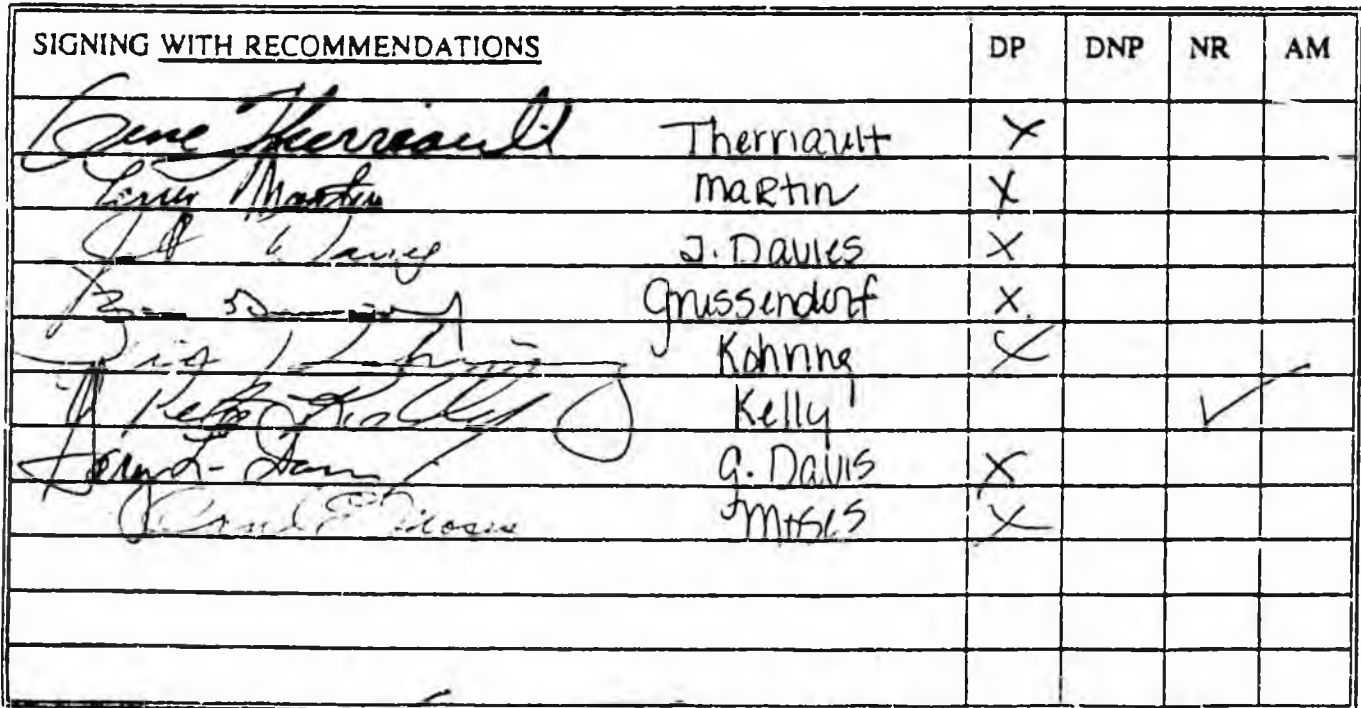 SIGNING WITH RECOMMENDATIONS DP DNP NR AM
Gene Therriault Therriault X
Martin Martin X
J. Davies X
Grussendorf X
Kohring X
Pete Kelly Kelly ✓
G. Davis X
Moses Moses X